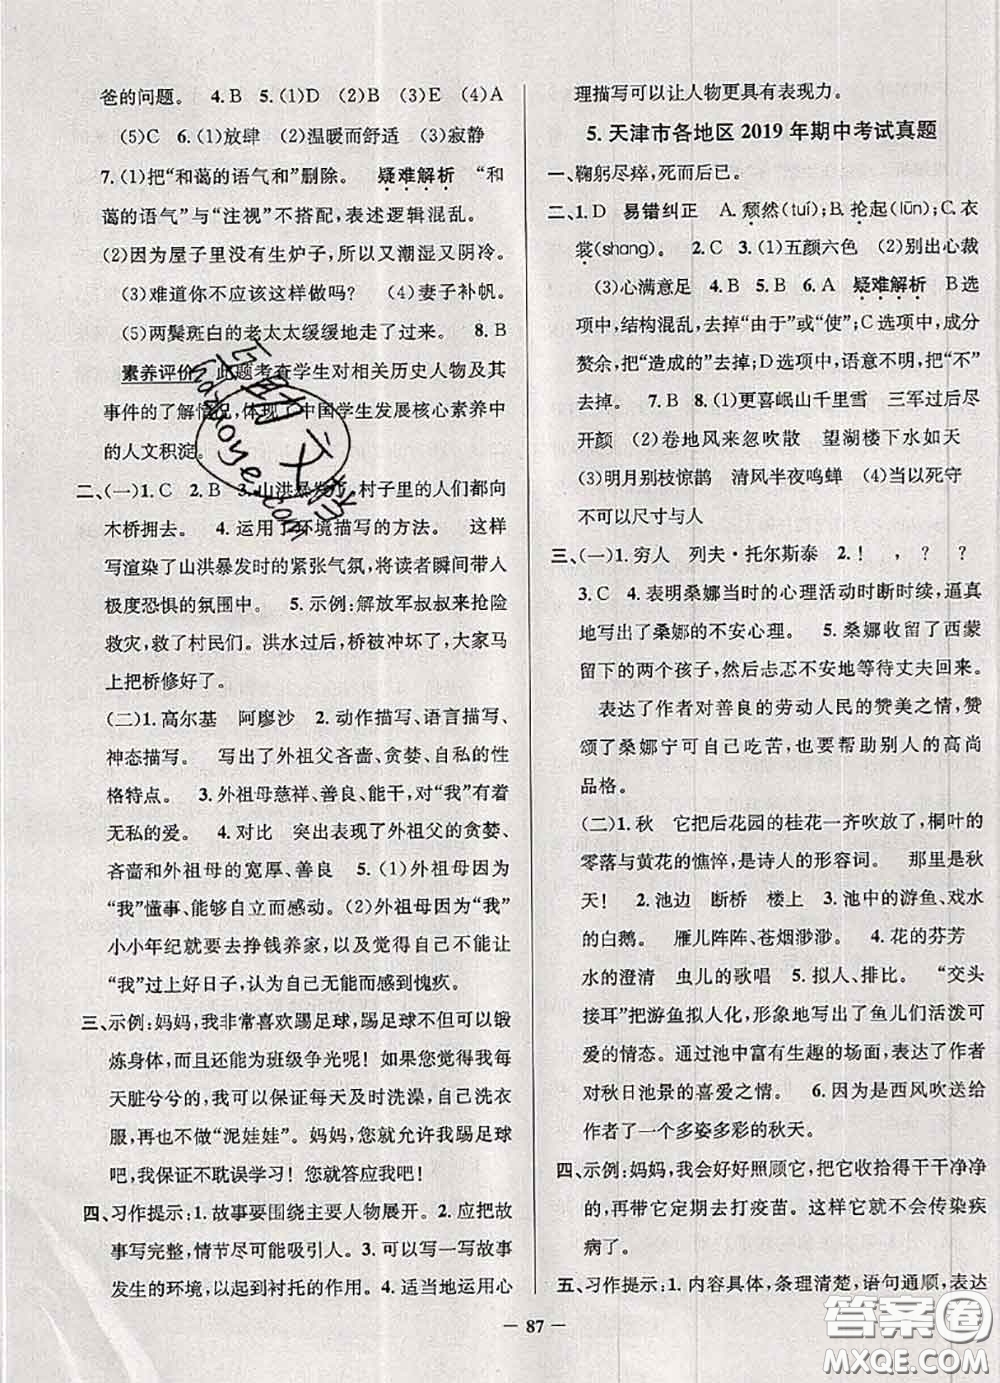 爸的问题。 4. B 5. (1)D (2)B (3)E (4)A
(5)C 6. (1)放肆 (2)温暖而舒适 (3)寂静
7. (1)把“和蔼的语气和”删除。 疑难解析 “和
蔼的语气”与“注视”不搭配,表述逻辑混乱。
(2)因为屋子里没有生炉子,所以又潮湿又阴冷。
(3)难道你不应该这样做吗? (4)妻子补帆。
(5)两鬓斑白的老太太缓缓地走了过来。 8. B
素养评价 此题考查学生对相关历史人物及其
事件的了解情况,体现了中国学生发展核心素养中
的人文积淀。
二、(一)1. C 2. B 3. 山洪暴发了,村子里的人们都向
木桥拥去。 4. 运用了环境描写的方法。 这样
写渲染了山洪暴发时的紧张气氛,将读者瞬间带入
极度恐惧的氛围中。 5. 示例:解放军叔叔来抢险
救灾,救了村民们。洪水过后,桥被冲坏了,大家马
上把桥修好了。
(二)1. 高尔基 阿廖沙 2. 动作描写、语言描写、
神态描写。 写出了外祖父吝啬、贪婪、自私的性
格特点。 3. 外祖母慈祥、善良、能干,对“我”有着
无私的爱。 4. 对比 突出表现了外祖父的贪婪、
吝啬和外祖母的宽厚、善良 5. (1)外祖母因为
“我”懂事、能够自立而感动。(2)外祖母因为“我”
小小年纪就要去挣钱养家,以及觉得自己不能让
“我”过上好日子,认为自己无能而感到愧疚。
三、示例:妈妈,我非常喜欢踢足球,踢足球不但可以锻
炼身体,而且还能为班级争光呢!如果您担心我每
天脏兮兮的,我保证每天及时洗澡,及时洗干净衣
服,再也不做“泥娃娃”。妈妈,您就允许我踢足球
吧,我保证不耽误学习!您就答应我吧!
四、习作提示:1. 故事要围绕主要人物展开。2. 应把故
事写完整,情节尽可能吸引人。3. 可以写一写故事
发生的环境,以起到衬托的作用。4. 适当地运用心
理描写可以让人物更具有表现力。
5. 天津市各地区 2019 年期中考试真题
一、鞠躬尽瘁,死而后已。
二、1. D 易错纠正 A. 颓然(tuí);B. 抡起(lūn);C. 衣
裳(shang)。 2. C 3. (1)五颜六色 (2)别出心裁
(3)心满意足 4. B 5. B 6. A 疑难解析 B选
项中,结构混乱,去掉“由于”或“使”;C选项中,成分
赘余,把“造成的”去掉;D选项中,语意不明,把“不”
去掉。 7. B 8. (1)更喜岷山千里雪 三军过后尽
开颜 (2)卷地风来忽吹散 望湖楼下水如天
(3)明月别枝惊鹊 清风半夜鸣蝉 (4)当以死守
不可以尺寸与人
三、(一)1. 穷人 列夫·托尔斯泰 2. ! , ? ?
3. C 4. 表明桑娜当时的心理活动时断时续,逼真
地写出了桑娜的不安心理。 5. 桑娜收留了西蒙
留下的两个孩子,然后忐忑不安地等待丈夫回来。
表达了作者对善良的劳动人民的赞美之情,赞
颂了桑娜宁可自己吃苦,也要帮助别人的高尚
品格。
(二)1. 秋 它把后花园的桂花一齐吹放了,桐叶的
零落与黄花的憔悴,是诗人的形容词。 那里是秋
天! 2. 池边 断桥 楼上 3. 池中的游鱼、戏水
的白鹅。 雁儿阵阵、苍烟渺渺。 4. 花的芬芳
水的澄清 虫儿的歌唱 5. 拟人、排比。 “交头
接耳”把游鱼拟人化,形象地写出了鱼儿们活泼可
爱的情态。通过池中富有生趣的场面,表达了作者
对秋日池景的喜爱之情。 6. 因为是西风吹送给
作者了一个多姿多彩的秋天。
四、示例:妈妈,我会好好照顾它,把它收拾得干干净净
的,再带它定期去打疫苗。这样就不会传染疾
病了。
五、习作提示:1. 内容具体,条理清楚,语句通顺,表达
— 87 —
答案圈
MXQE.COM